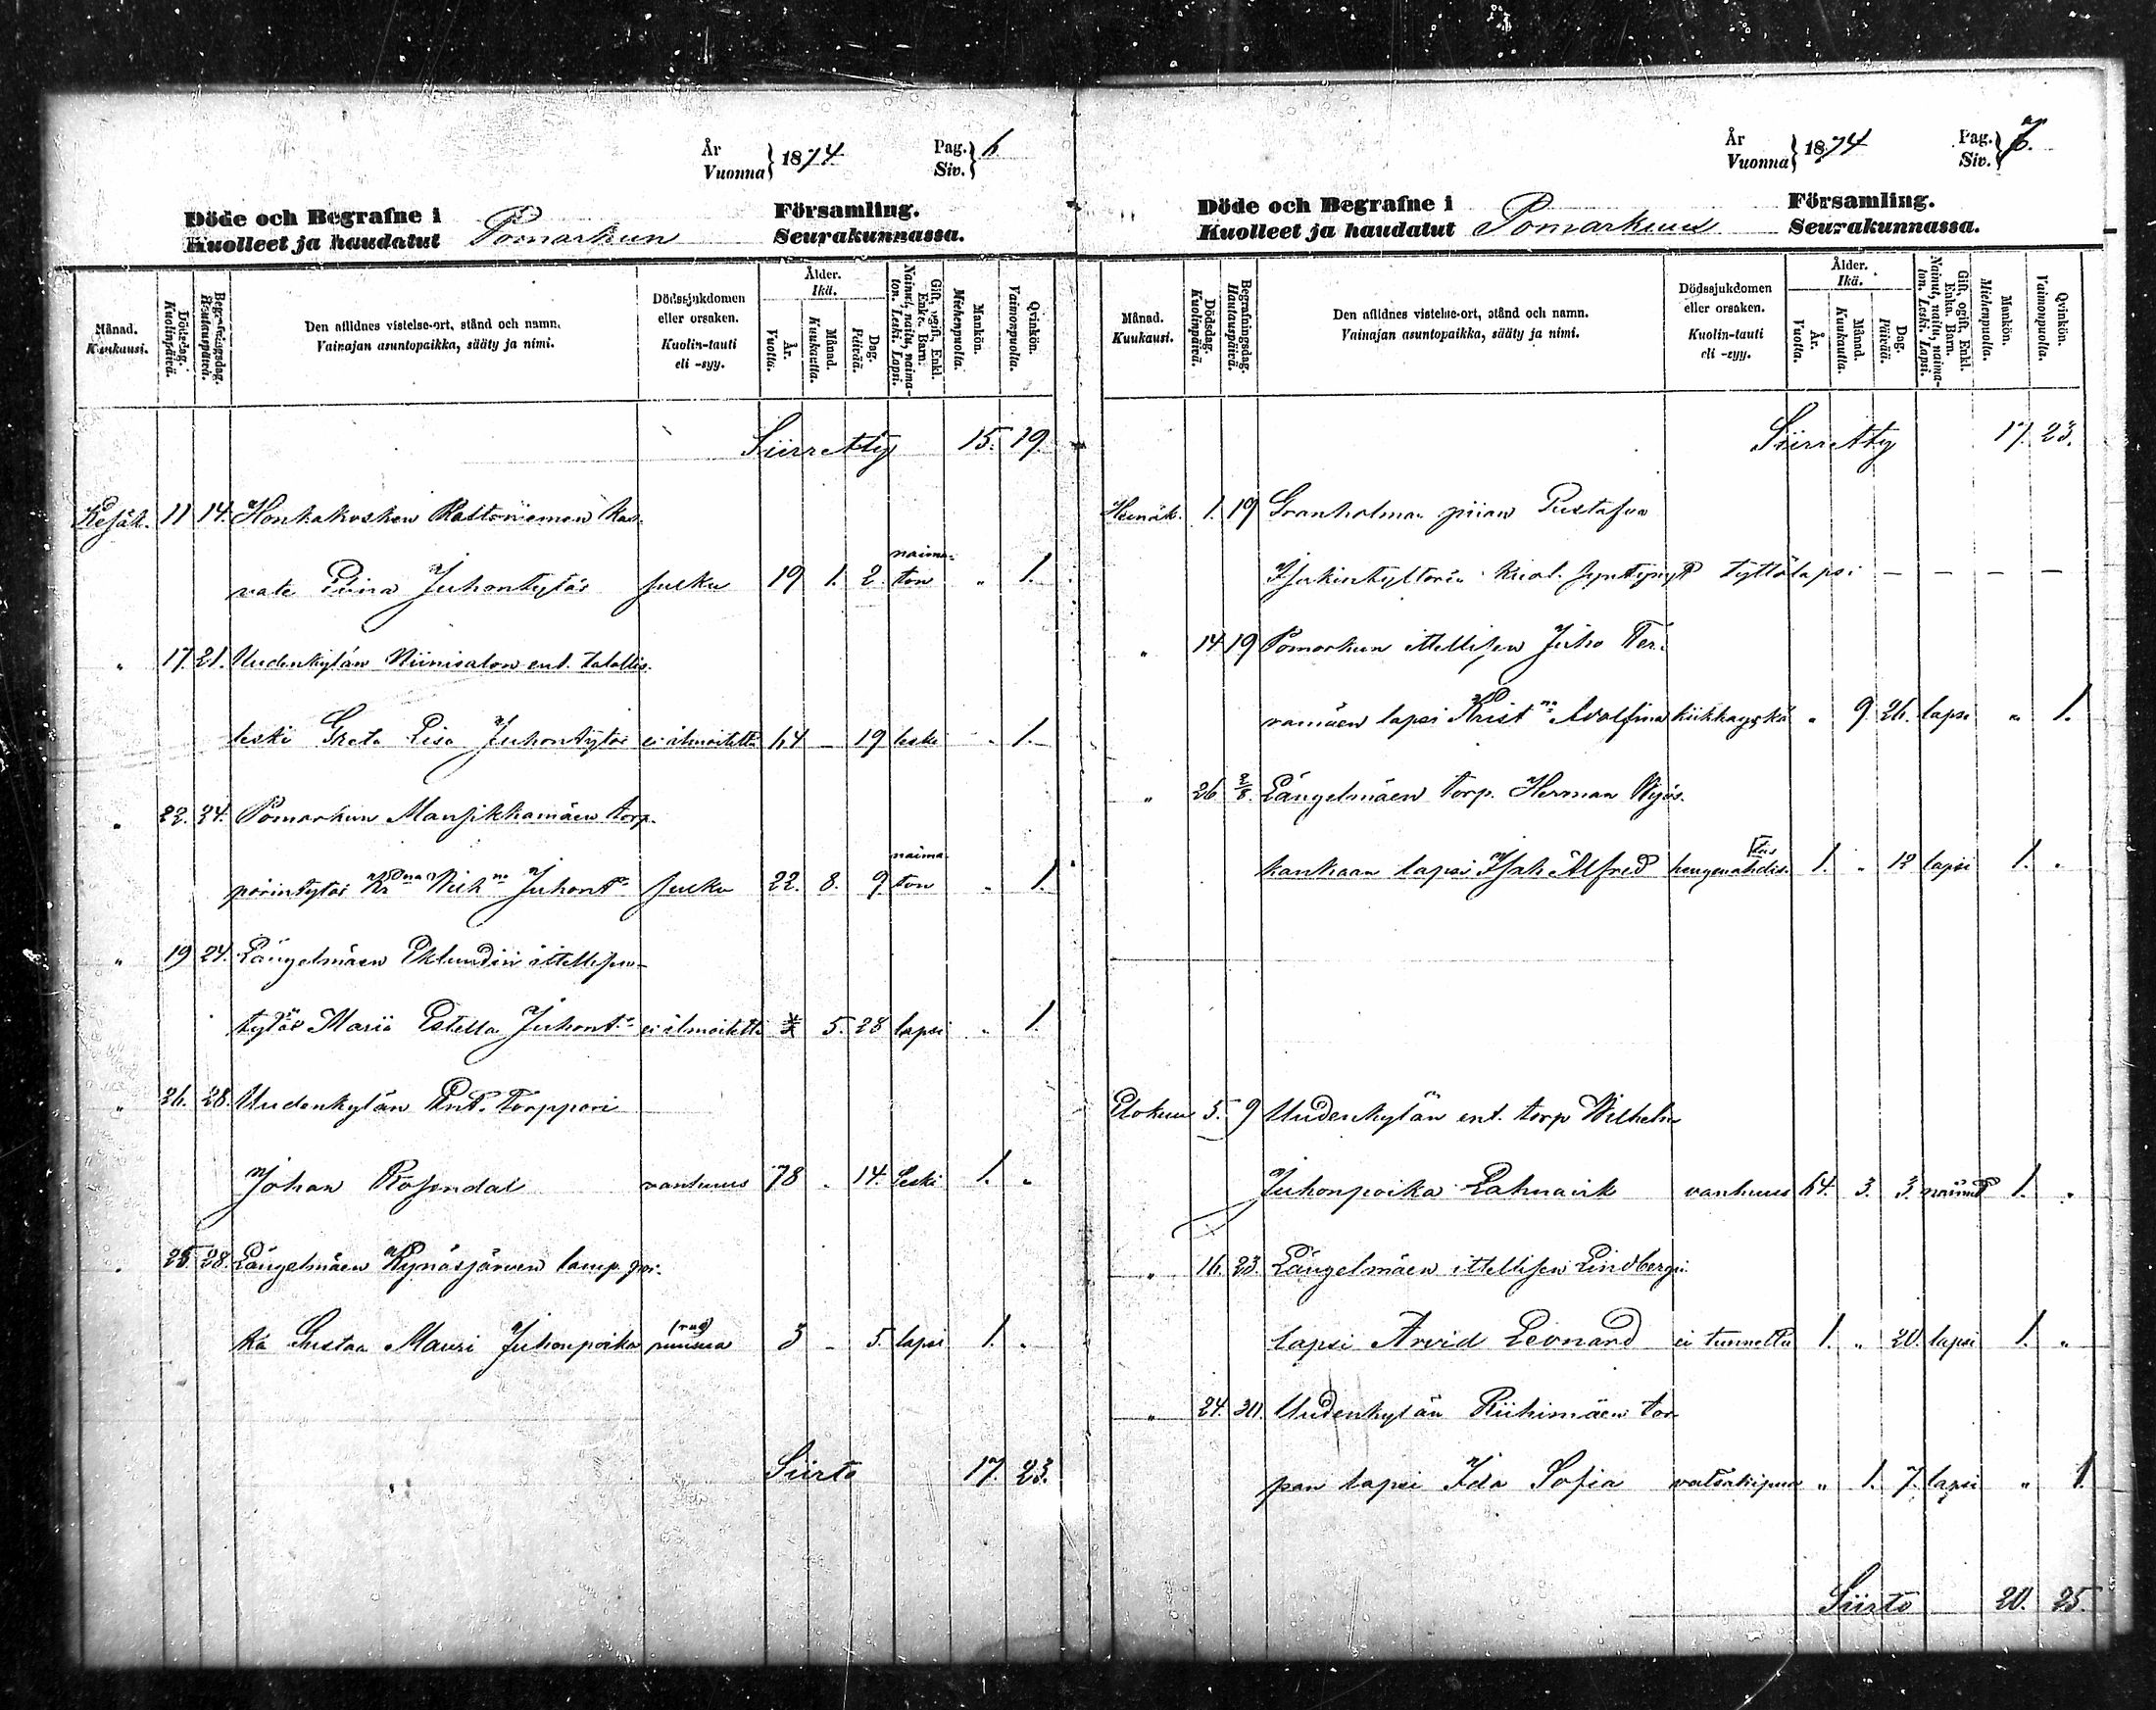 År
Vuonna } 1874. Pag.
Siv. } 6
Döde och Begrafne i
Kuolleet ja haudatut Pomarkun Församling.
Seurakunnassa.
Månad.
Kuukausi.
Dödsdag.
Kuolinpäivä.
Begrafningsdag.
Hautauspäivä.
Den aflidnes vistelse-ort, stånd och namn.
Vainajan asuntopaikka, sääty ja nimi.
Dödssjukdomen
eller orsaken.
Kuolin-tauti
eli -syy.
Ålder.
Ikä.
År.
Vuotta.
Månad.
Kuukautta.
Dag.
Päivää.
Gift, ogift, Enkl.
Enka. Barn.
Nainut, naitu, naima-
ton. Leski. Lapsi.
Mankön.
Miehenpuolta.
Qvinkön.
Vaimonpuolta.
Siirretty 15. 19.
Kesäk. 11 14. Honkakosken Rastoniemen kas-
vate Juhontytär 19 1. 2. naima-
ton " 1.
" 17. 21. Uudenkylän Niinisalon ent. talollis.
leski Greta Lisa Juhontytär ei ilmoitettu 64 – 19 leski " 1.
" 22. 24. Pomarkun Mansikkamäen torp-
parintytär Juhont. 22. 8. 9. naima-
ton " 1.
" 19 24. Längelmäen Eklundin ittellisen-
tytär Maria Estella Juhont. ei ilmoitettu 5. 28 lapsi " 1.
" 26. 28. Uudenkylän Ent. Torppari
Johan Rosendal vanhuus 78 " 14. Leski 1. "
" 25 28. Längelmäen Kynäsjärven lamp. poi-
ka Kustaa Mauri Juhonpoika 3 – 5. lapsi 1. "
Siirto 17. 23.
År
Vuonna } 1874 Pag.
Siv. } 7.
Döde och Begrafne i
Kuolleet ja haudatut Pomarkun Församling.
Seurakunnassa.
Månad.
Kuukausi.
Dödsdag.
Kuolinpäivä.
Begrafningsdag.
Hautauspäivä.
Den aflidnes vistelse-ort, stånd och namn.
Vainajan asuntopaikka, sääty ja nimi.
Dödssjukdomen
eller orsaken.
Kuolin-tauti
eli -syy.
Ålder.
Ikä.
År.
Vuotta.
Månad.
Kuukautta.
Dag.
Päivää.
Gift, ogift, Enkl.
Enka. Barn.
Nainut, naitu, naima-
ton. Leski. Lapsi.
Mankön.
Miehenpuolta.
Qvinkön.
Vaimonpuolta.
Siirretty 17. 23.
Heinäk. 1. 19 Granholman piian Gustafva
Isakintyttären kuol. syntynyt tyttölapsi – – – –
" 14 19 Pomarkun ittellisen Juho Ter-
vamäen lapsi Krist.na Adolfina hinkuyskä " 9. 26. lapsi " 1.
" 26 2/8. Längelmäen torp. Herman
kankaan lapsi Isak Alfred hengenahdistus 1. " 12 lapsi 1. "
Elokuu 5. 9 Uudenkylän ent. torp Wilhelm
Juhonpoika vanhuus 64. 3. 3. nainut 1. "
" 16. 23. Längelmäen ittellisen Lindbergi
lapsi Arvid Leonard ei tunnettu 1. " 20. lapsi 1. "
" 24. 30. Uudenkylän Riihimäen tor-
pan lapsi Ida Sofia vatsakipua " 1. 7. lapsi " 1.
Siirto 20. 25.